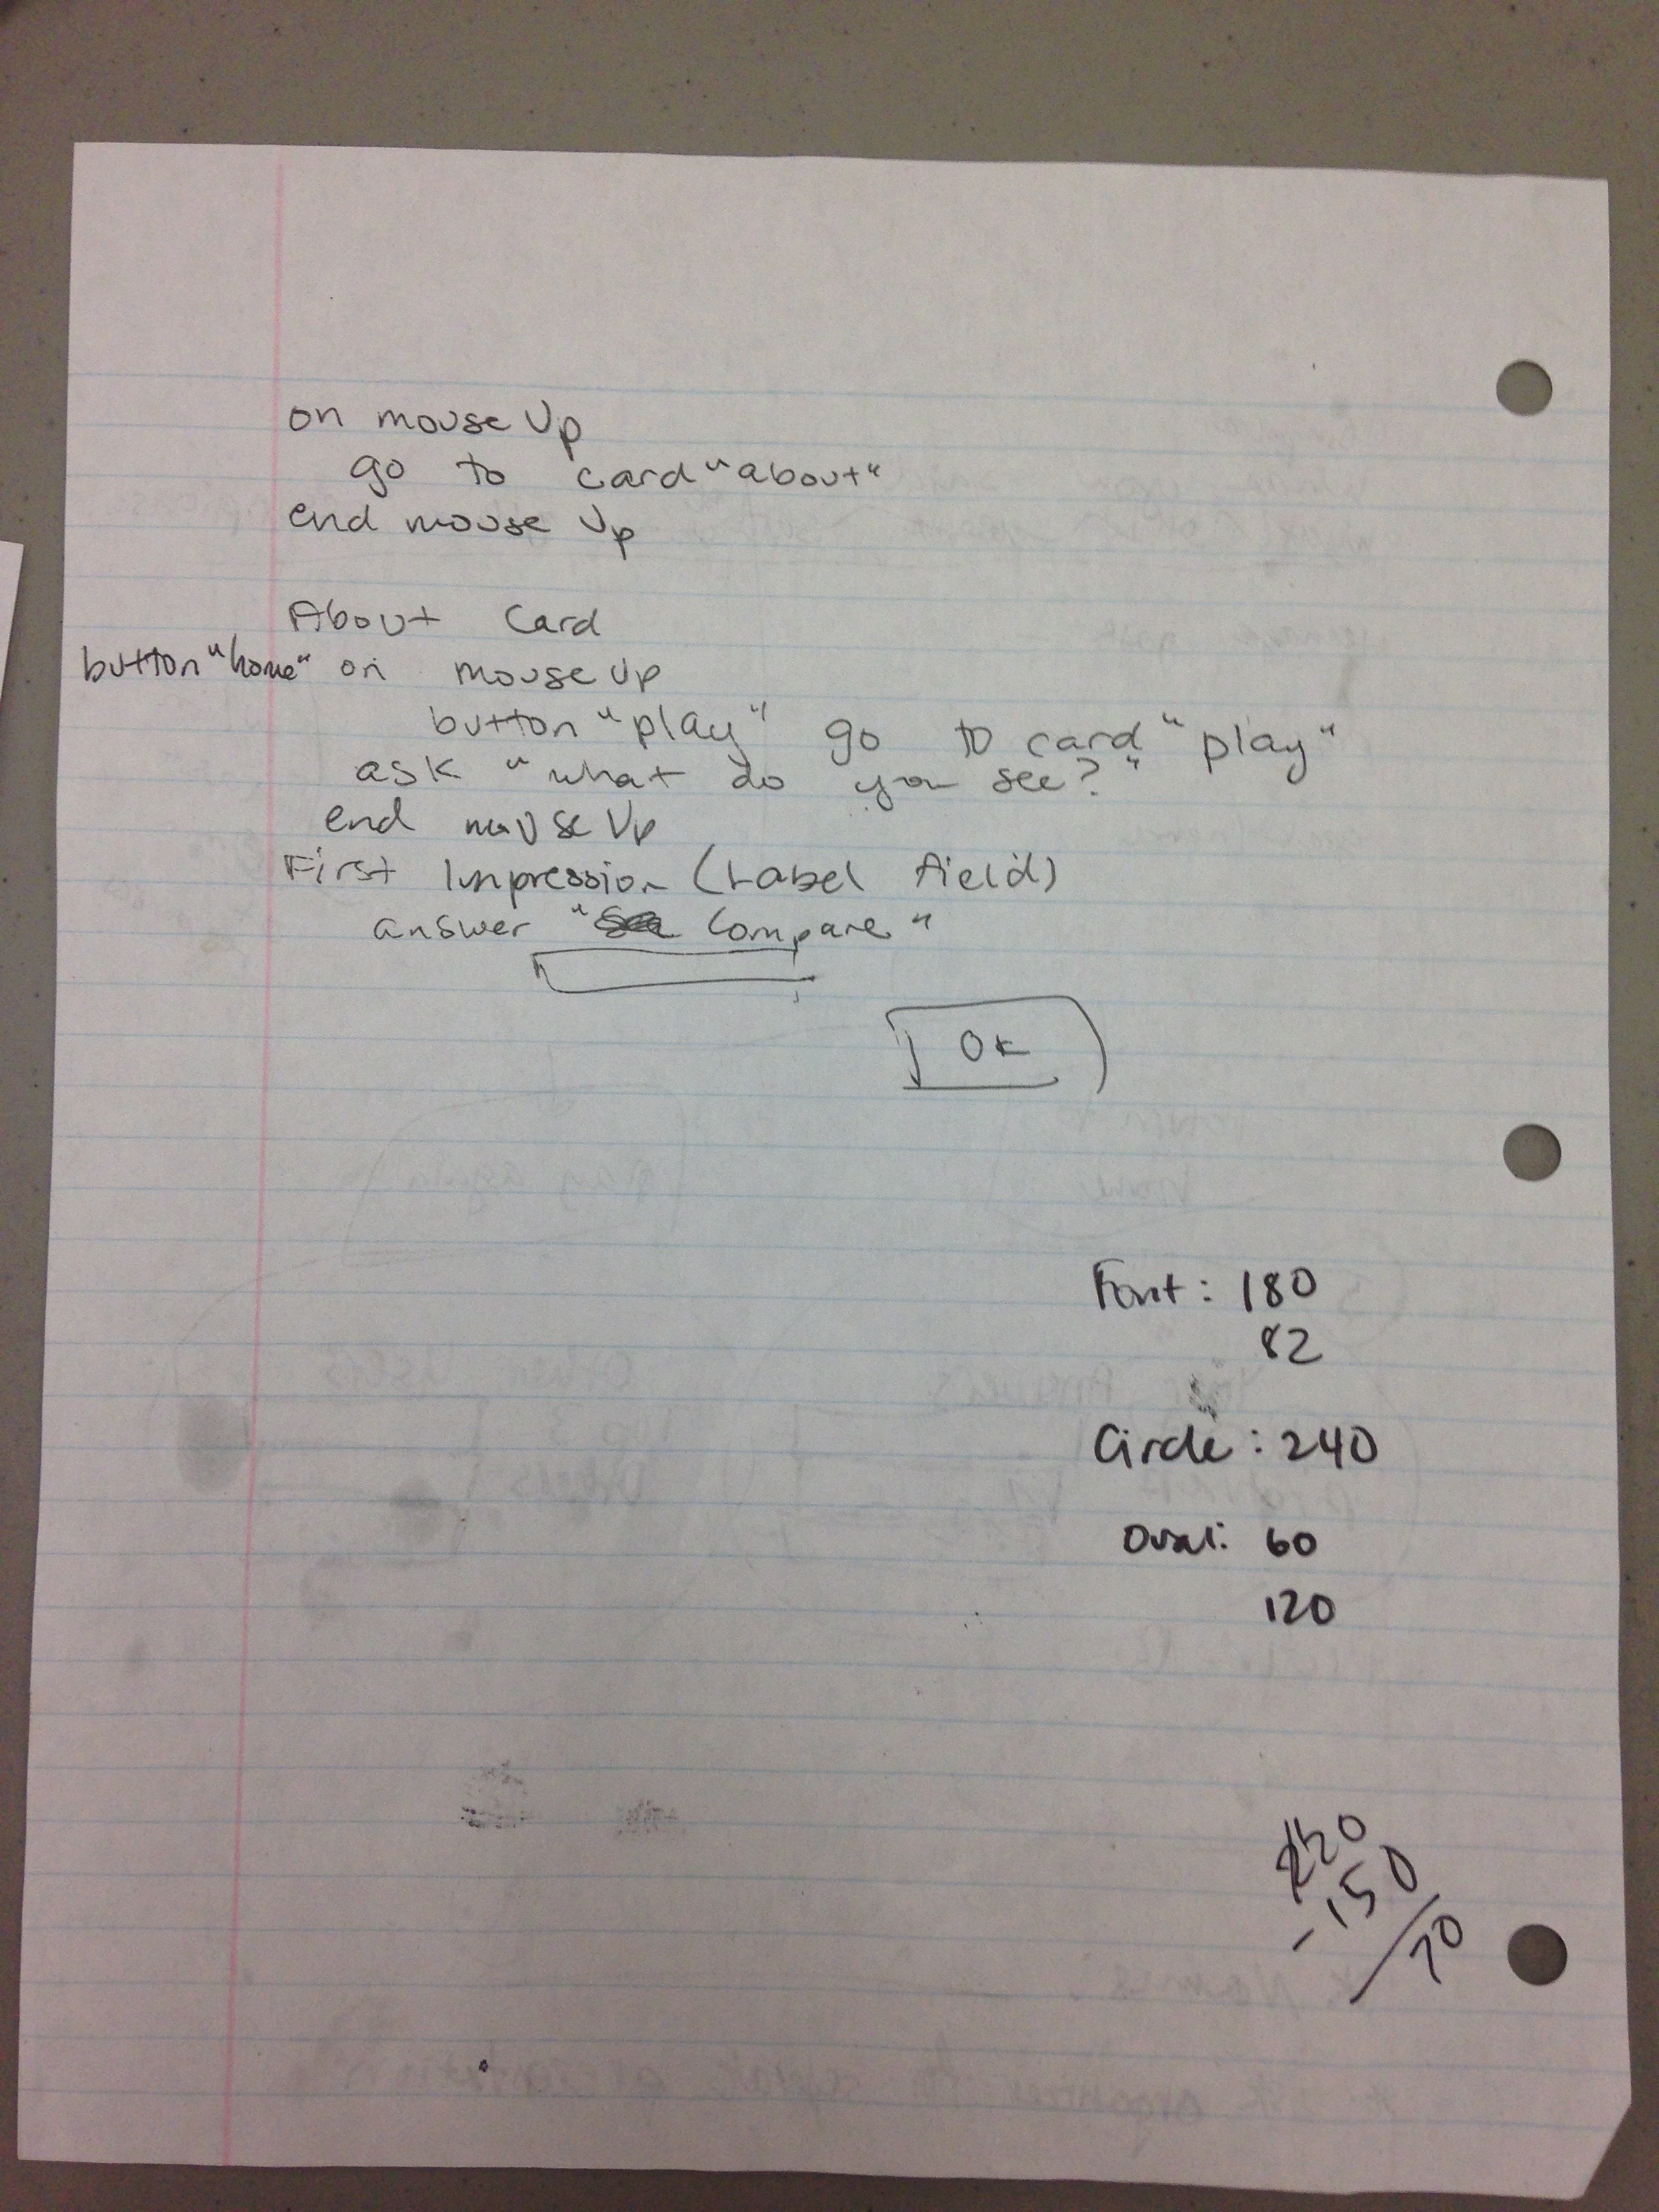 on mouse Up
go to card "about"
end mouse Up
About Card
button "home" on mouse Up
button "play" go to card "play"
ask "what do you see?"
end mouse Up
First Impression (Label field)
answer "Compare"
OK
Font: 180
82
Circle: 240
Oval: 60
120
220
-150
70